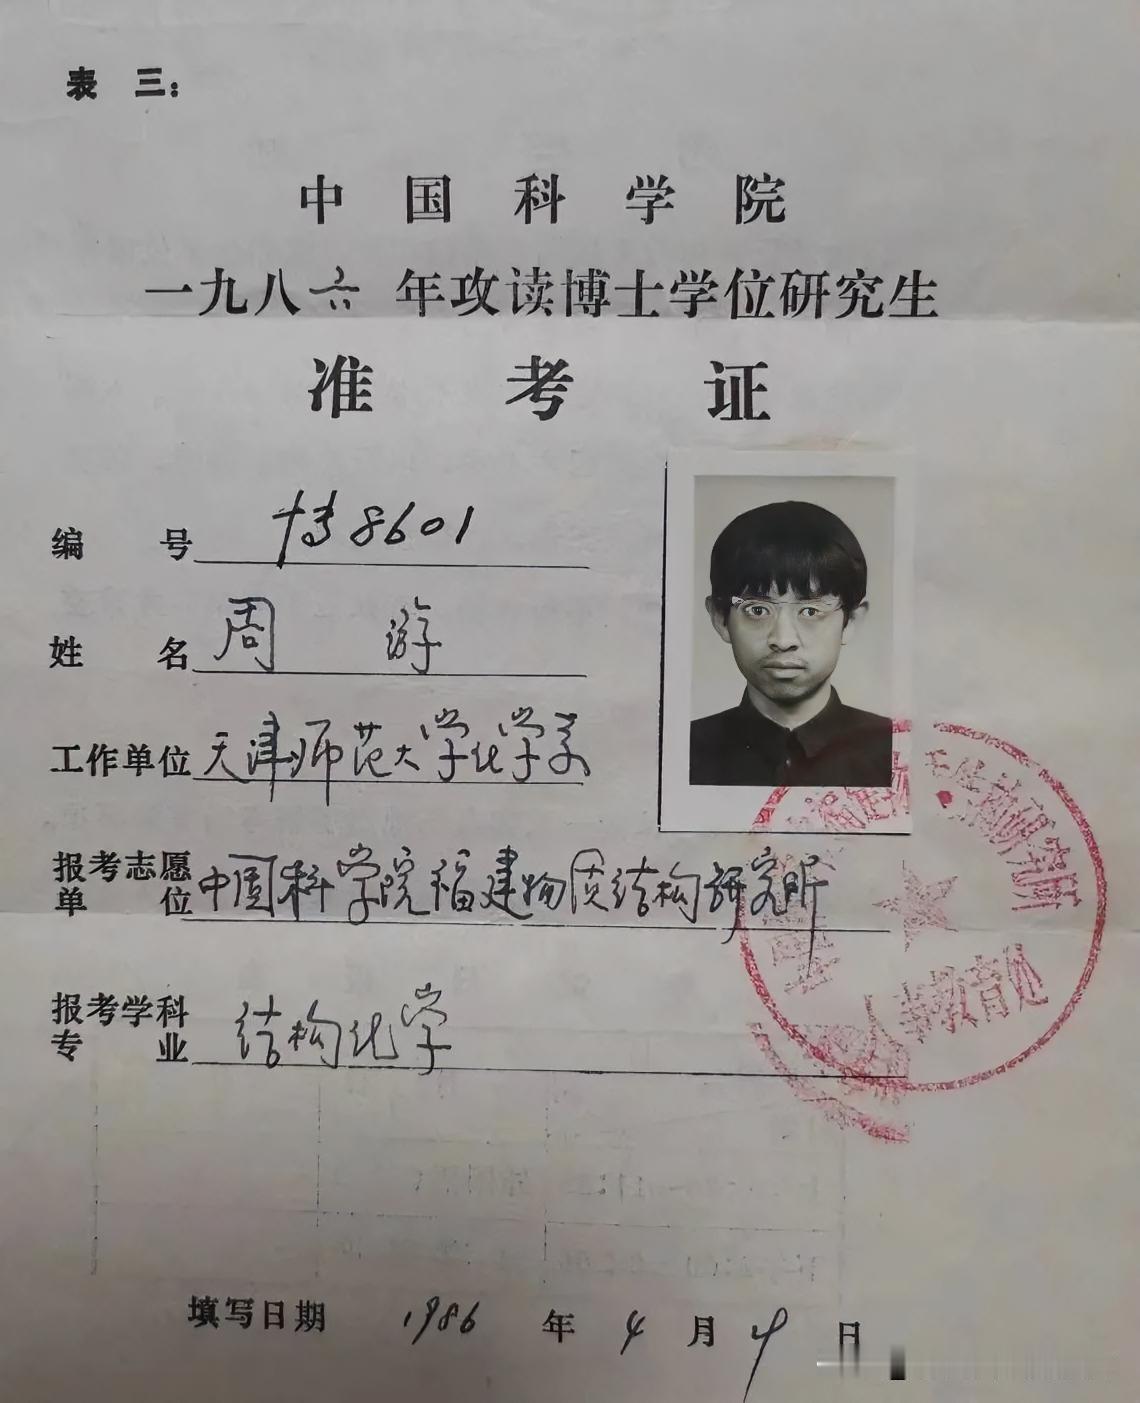 表 三：
中国科学院
一九八六年攻读博士学位研究生
准考证
编号 博8601
姓名 周游
工作单位 天津师范大学化学系
报考志愿单位 中国科学院福建物质结构研究所
报考学科专业 结构化学
研究所
人事教育处
填写日期 1986 年 4 月 9 日